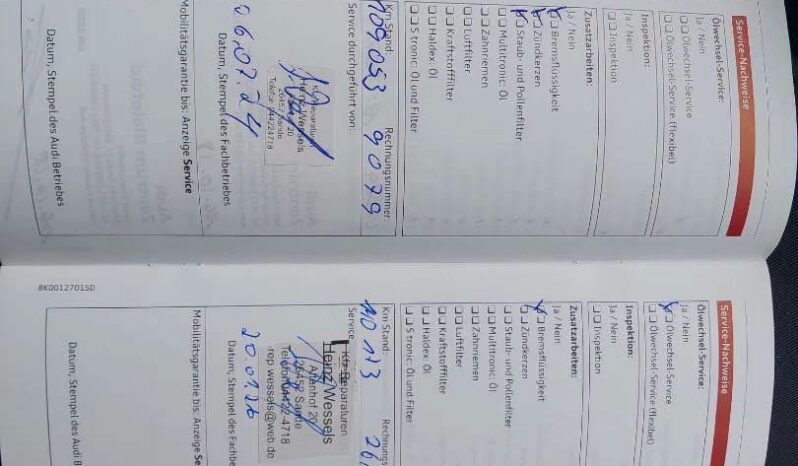 Service-Nachweise
Ölwechsel-Service:
Ja / Nein
Ölwechsel-Service
Ölwechsel-Service (flexibel)
Inspektion:
Ja / Nein
Inspektion
Zusatzarbeiten:
Ja / Nein
Bremsflüssigkeit
Zündkerzen
Staub- und Pollenfilter
Multitronic: Öl
Zahnriemen
Luftfilter
Kraftstofffilter
Haldex: Öl
S tronic: Öl und Filter
Km Stand: Rechnungsnummer
109053 9079
Service durchgeführt von:
Kfz-Reparaturen
Heinz Wessels
20
26452 Sande
06.07.24
Datum, Stempel des Fachbetriebes
Mobilitätsgarantie bis: Anzeige Service
Datum, Stempel des Audi Betriebes
8KD012701SD
Service-Nachweise
Ölwechsel-Service:
Ja / Nein
Ölwechsel-Service
Ölwechsel-Service (flexibel)
Inspektion:
Ja / Nein
Inspektion
Zusatzarbeiten:
Ja / Nein
Bremsflüssigkeit
Zündkerzen
Staub- und Pollenfilter
Multitronic: Öl
Zahnriemen
Luftfilter
Kraftstofffilter
Haldex: Öl
S tronic: Öl und Filter
Km Stand: Rechnungs
Service
Kfz-Reparaturen
Heinz Wessels
Altenhof 20
26452 Sande
Telefon 04422-4718
rep.wessels@web.de
20.01.26
Datum, Stempel des Fachbe
Mobilitätsgarantie bis: Anzeige Se
Datum, Stempel des Audi B